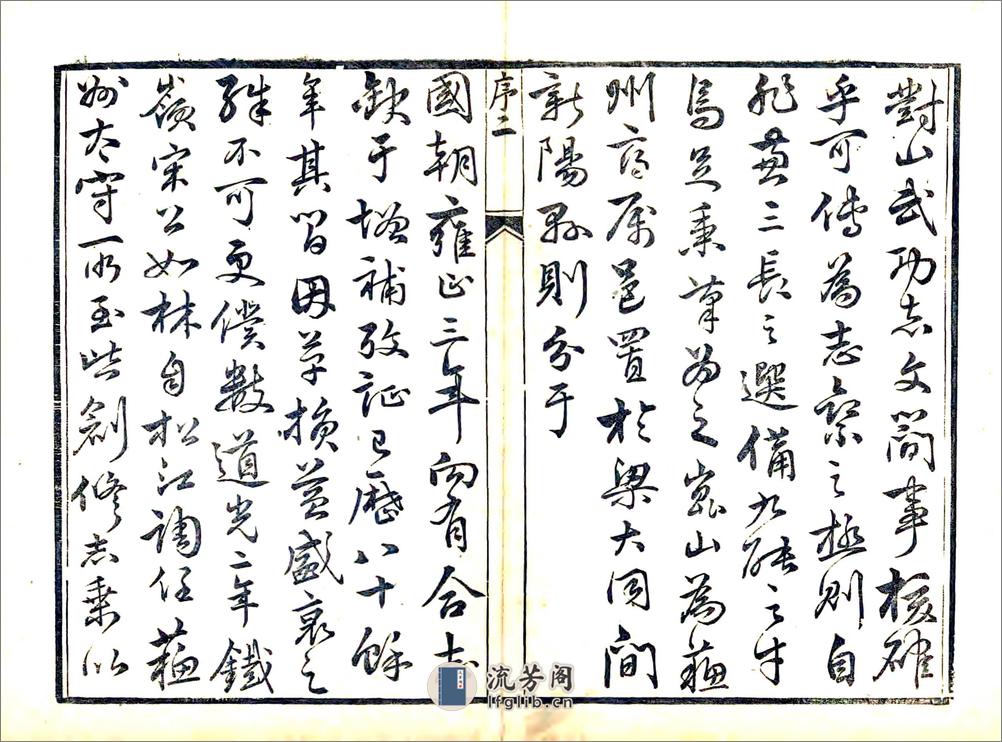 對山武功志文簡事核確
乎可傳為志乘之極則自
非兼三長之選備九能之才
焉足秉筆為之崑山為蘇
州府屬邑置於梁大同間
新陽縣則分于
序二
國朝雍正三年向有合志
缺于增補攷証已歷八十餘
年其間因革損益盛衰之
殊不可更僕數道光二年鐵
嶺宋公如林自松江調任蘇
州太守所至皆創修志乘以
流芳阁
lfglib.cn